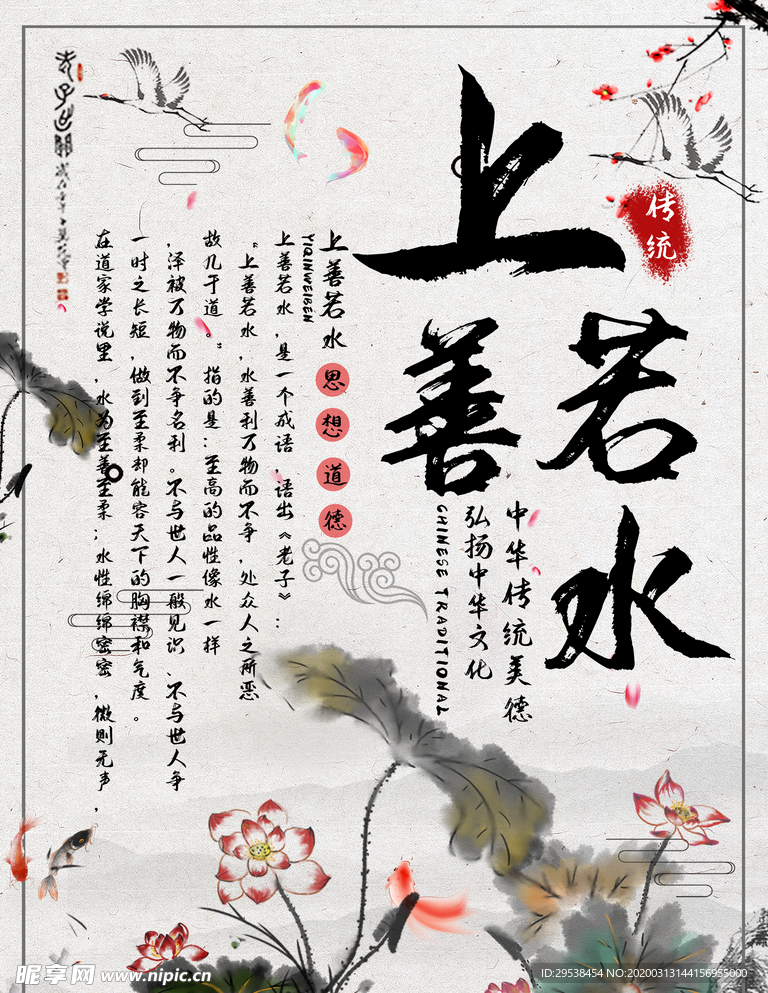 上善若水
传统
中华传统美德
弘扬中华文化
CHINESE TRADITIONAL
上善若水
思想道德
YIQINWEIBEN
上善若水，是一个成语，语出《老子》：
“上善若水，水善利万物而不争，处众人之所恶
故几于道。”指的是：至高的品性像水一样
，泽被万物而不争名利。不与世人一般见识、不与世人争
一时之长短，做到至柔却能容天下的胸襟和气度。
在道家学说里，水为至善至柔；水性绵绵密密，微则无声，
老子出关
昵享网 www.nipic.cn
ID:29538454 NO:20200313144156955000